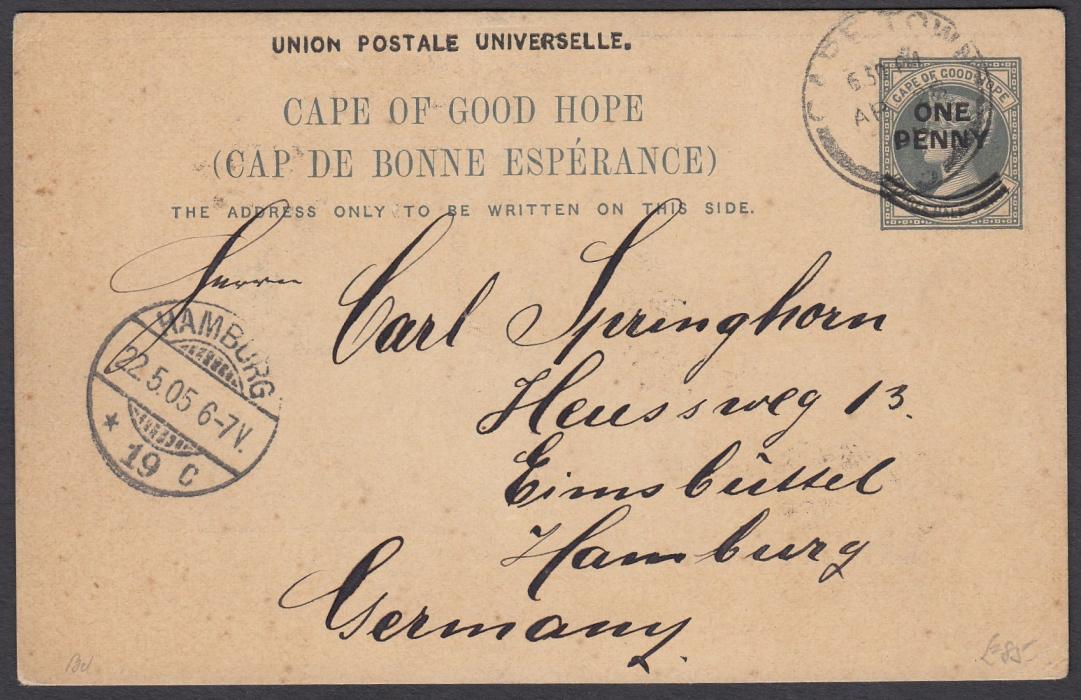 UNION POSTALE UNIVERSELLE.
CAPE OF GOOD HOPE
(CAP DE BONNE ESPÉRANCE)
THE ADDRESS ONLY TO BE WRITTEN ON THIS SIDE.
CAPE TOWN
6 30 PM
AP
CAPE OF GOOD HOPE
ONE
PENNY
Herrn
Carl Springhorn
Heussweg 13.
Eimsbüttel
Hamburg
Germany
HAMBURG
22.5.05 6-7V.
* 19 C
£85-